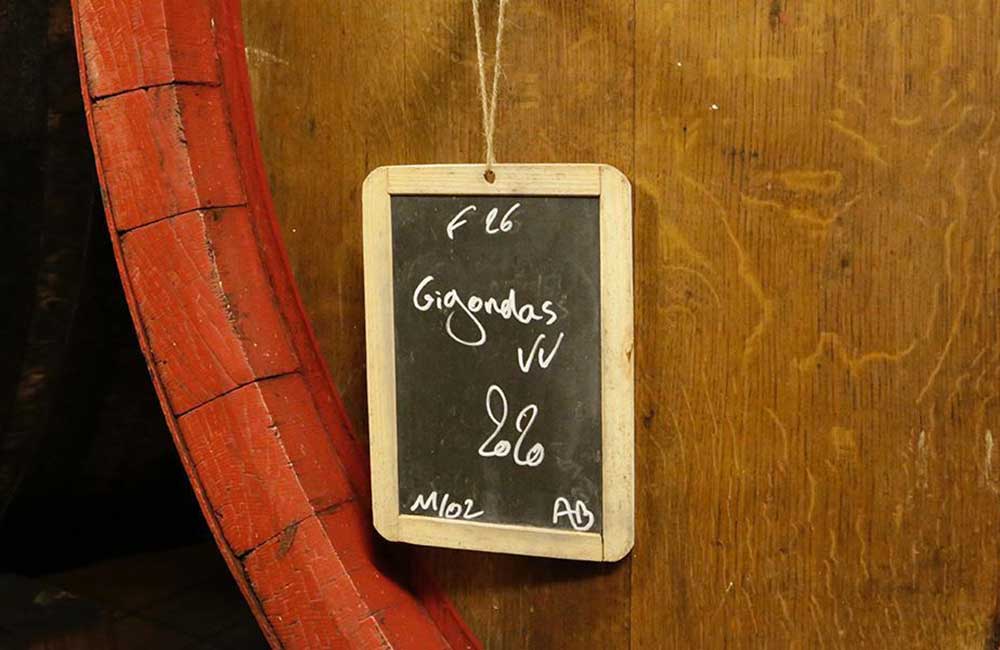 F 26
Gigondas
VV
22
M/02 AB